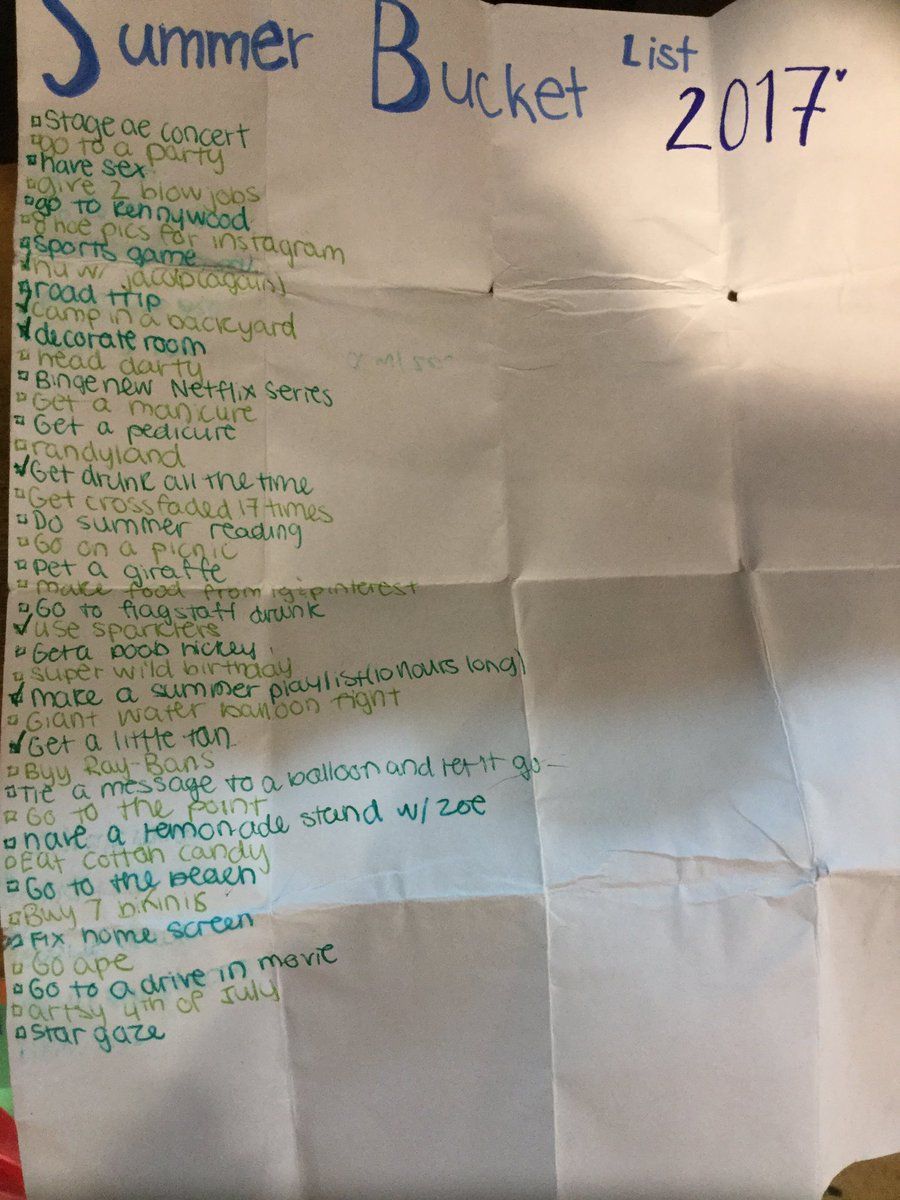 Summer Bucket List
2017
Stage ae concert
go to a party
have sex
give 2 blow jobs
go to Kennywood
8 hoe pics for instagram
sports game
hu w/ jacob (again)
road trip
camp in a backyard
decorate room
head darty
Binge new Netflix series
Get a manicure
Get a pedicure
randyland
Get drunk all the time
Get crossfaded 17 times
Do summer reading
Go on a picnic
Pet a giraffe
make food from ig + pinterest
Go to flagstaff drunk
use sparklers
Get a boob hickey
super wild birthday
make a summer playlist (10 hours long)
Giant water balloon fight
Get a little tan
Byy Ray-Bans
Tie a message to a balloon and let it go
Go to the point
have a lemonade stand w/ zoe
Eat cotton candy
Go to the beach
Buy 7 bikinis
Fix home screen
Go ape
Go to a drive in movie
artsy 4th of July
star gaze